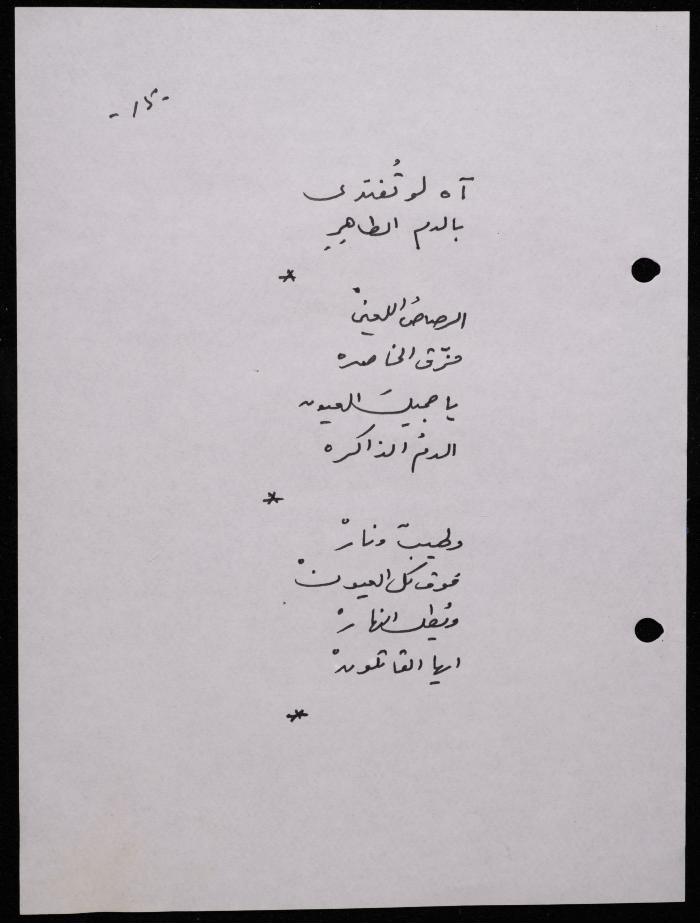 - ١٥ -
آه لو تُفتدى
بالدم الطاهرِ
*
الرصاصُ اللعينْ
مزّق الخاصره
يا جميلَ العيون
الدمُ الذاكره
*
ولهيبٌ ونارْ
فوق كل العيونْ
ويُطل النهارْ
ايها القاتلونْ
*